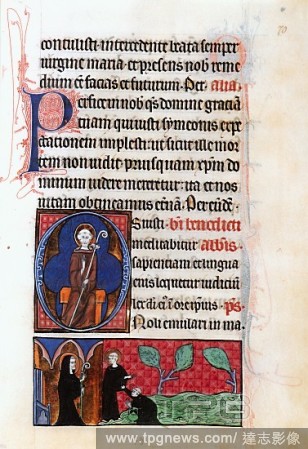 contulisti· intercedente beata semper
uirgine maria· et presens nob reme
dium ee facias et futurum· Per· alia
Perfice in nob qs domine graciā
tuam qui iusti symeonis expe
ctationem implesti· ut sicut ille mor
tem non uidit priusquam xp̄m do
minum uidere mereretur· ita et nos
uitam obtineamus et̄nā· Per eūdē·
Os iusti· bn̄ benedicti
meditabitur abb̄is·
sapienciam et lingua
eius loquetur iudiciū
lex dei ps
Noli emulari in ma
70
www.tpgnews.com/ 達志影像